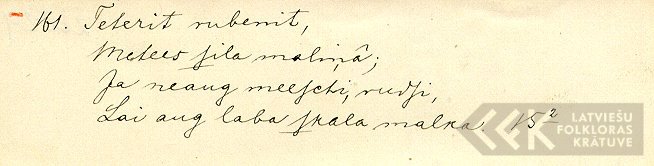 161. Teterit rubenit,
Metees ſila maliņâ;
Ja neaug meeſchi, rudſi,
Lai aug laba ſkala malka. 15²
LATVIEŠU
FOLKLORAS
KRĀTUVE